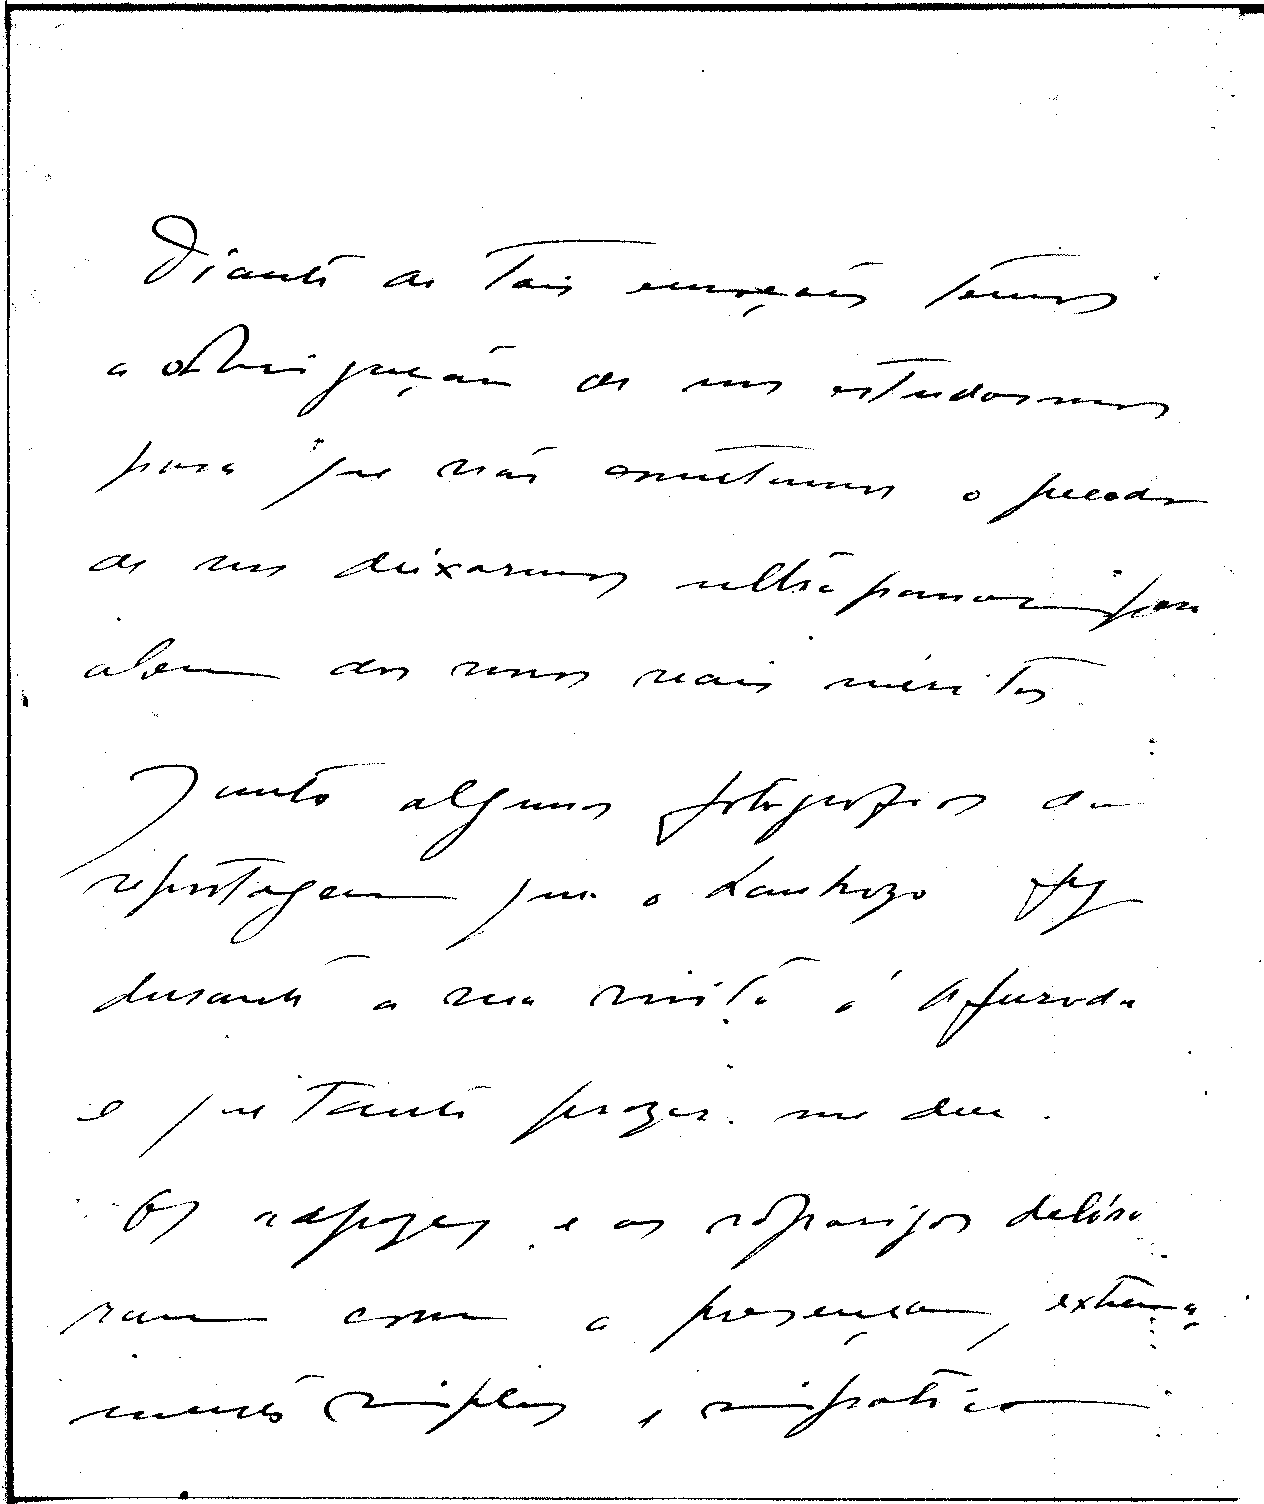 Diante de tais emoções temos
a obrigação de nos estudarmos
para que não cometamos o pecado
de nos deixarmos ultrapassar para
alem dos nossos reais méritos.
Junto algumas fotografias da
reportagem que o Lambozo fez
durante a sua visita á Afurada
e que tanto prazer me deu.
Os rapazes e as raparigas delira
ram com a presença, extrema
mente simples e simpatica